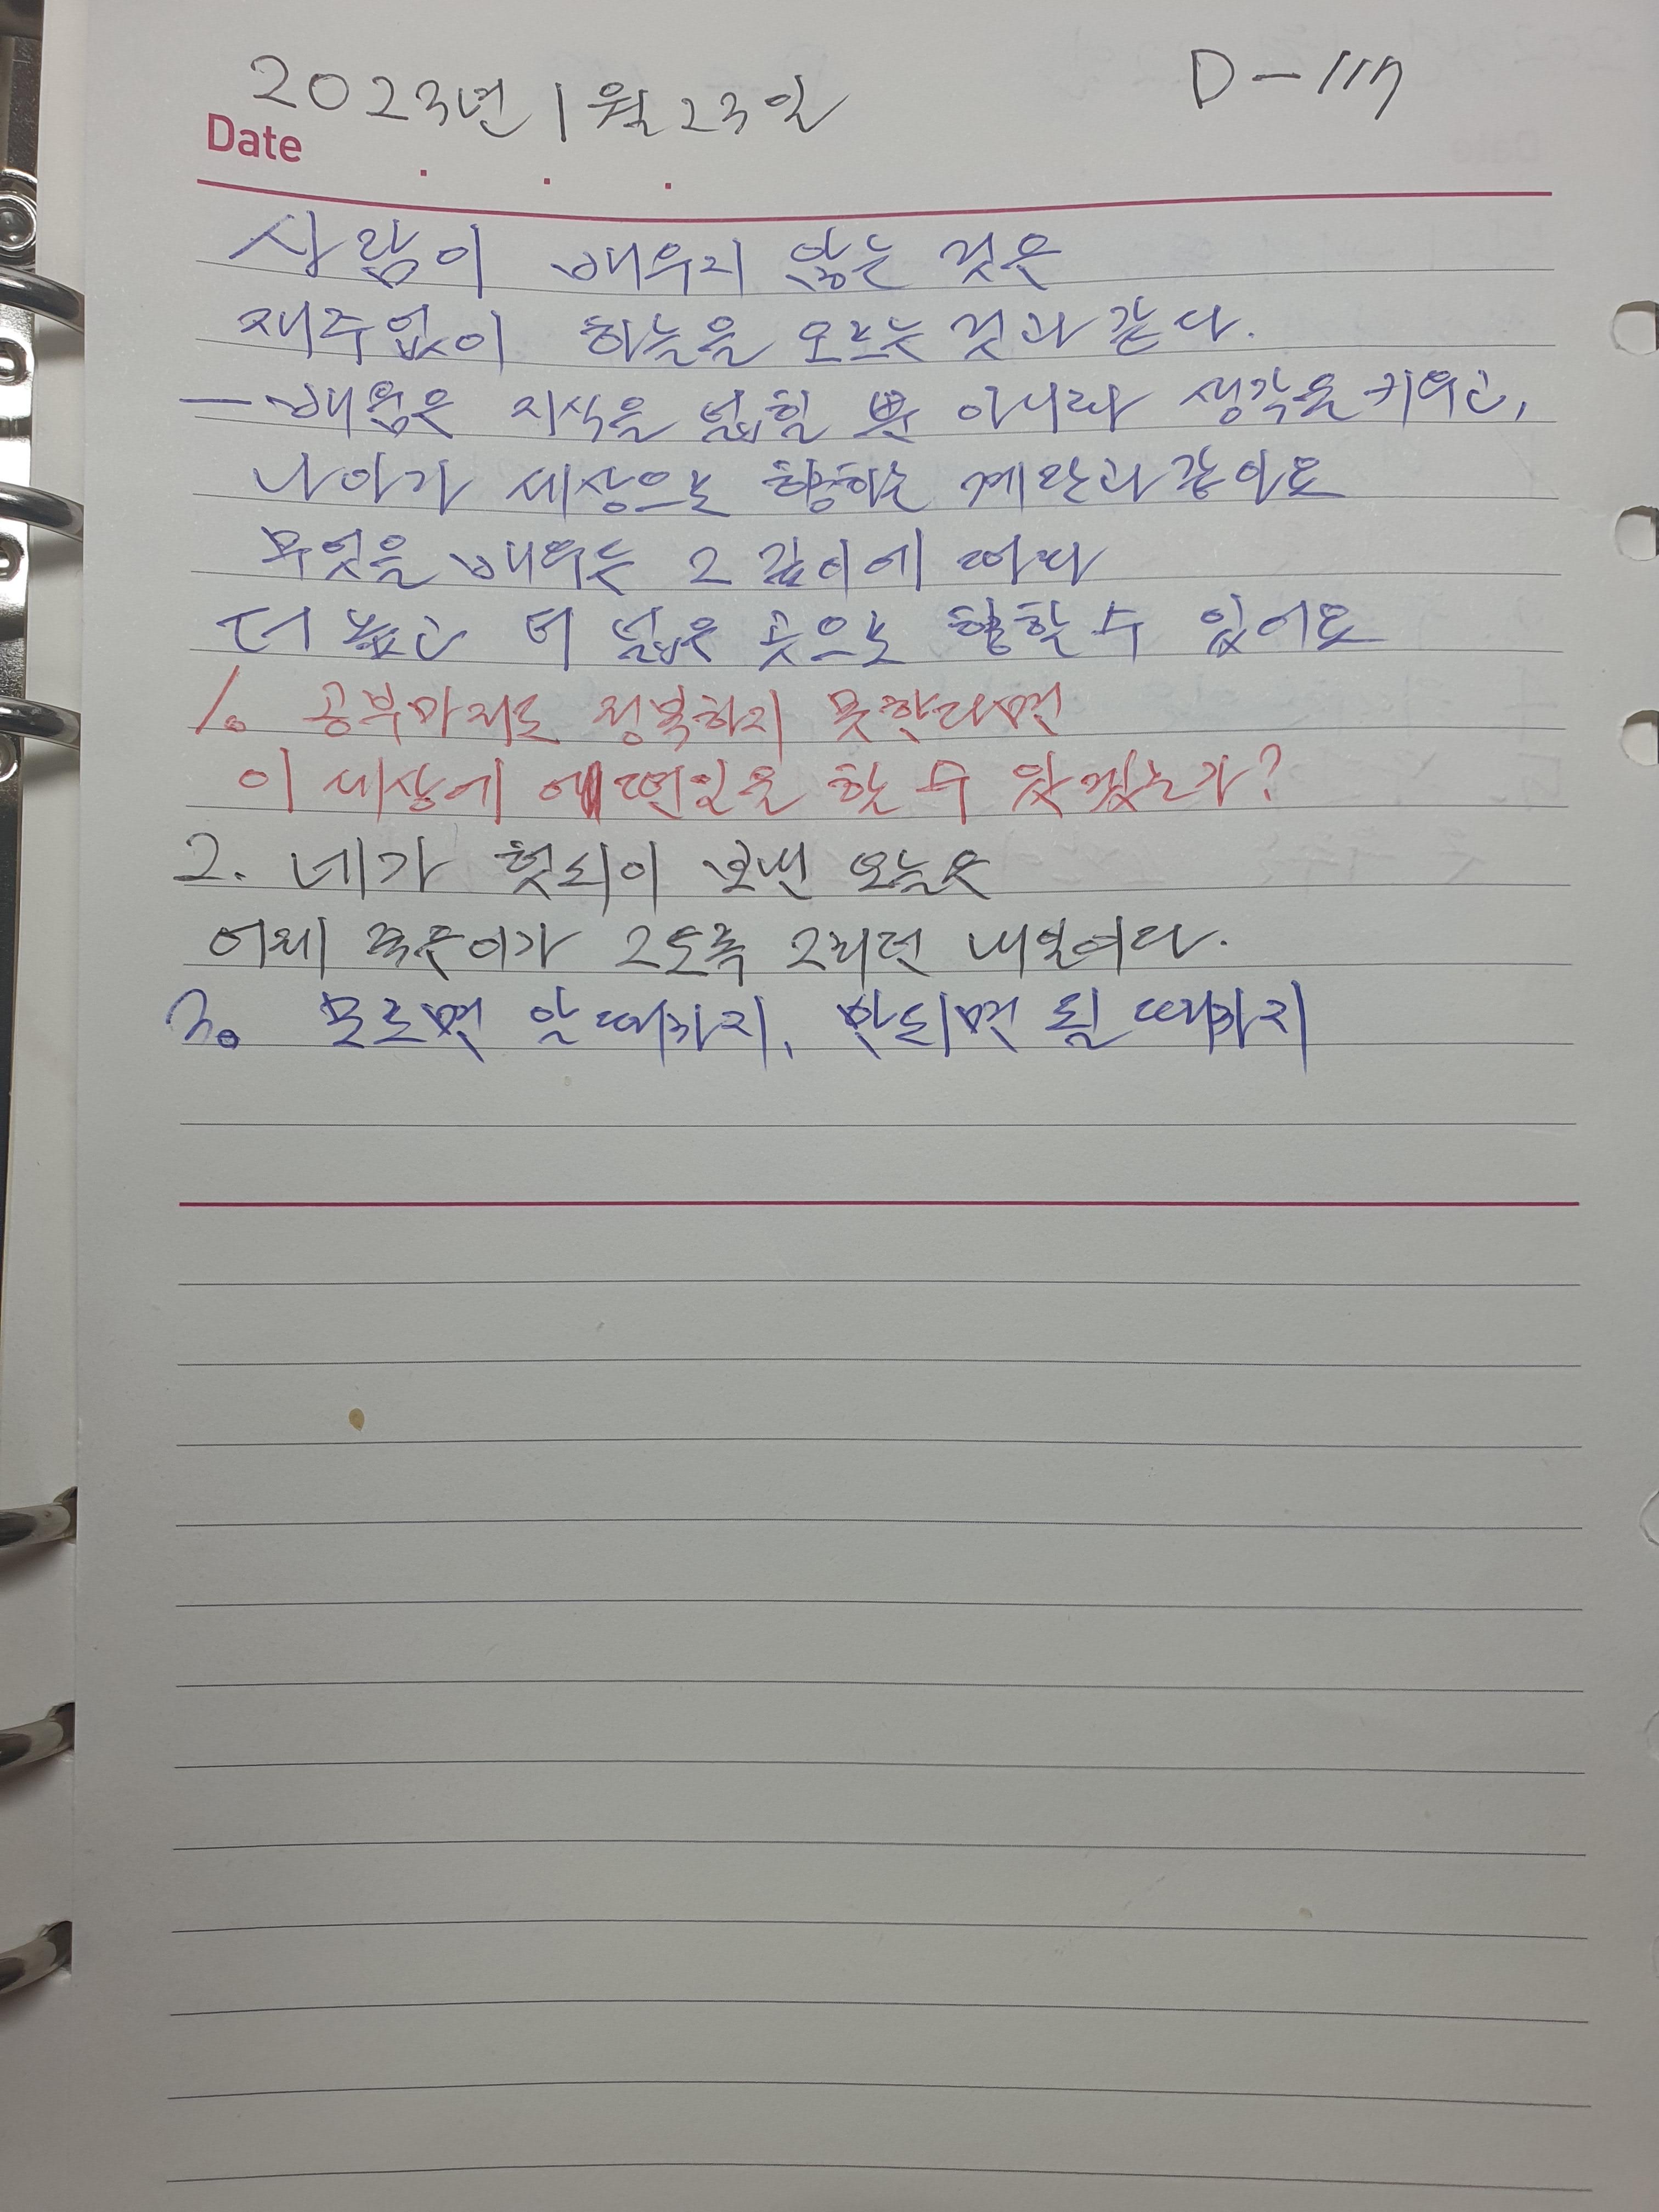 2023년 1월 23일
D-117
Date . . .
사람이 배우지 않는 것은
재주없이 하늘을 오르는 것과 같다.
- 배움은 지식을 넓힐 뿐 아니라 생각을 키우고,
나아가 세상으로 향하는 계단과 같아요
무엇을 배우든 그 깊이에 따라
더 높고 더 넓은 곳으로 향할 수 있어요
1. 공부마저도 정복하지 못한다면
이 세상에 어떤일을 할 수 있겠는가?
2. 네가 헛되이 보낸 오늘은
어제 죽은이가 그토록 그리던 내일이다.
3. 모르면 알때까지, 안되면 될 때까지